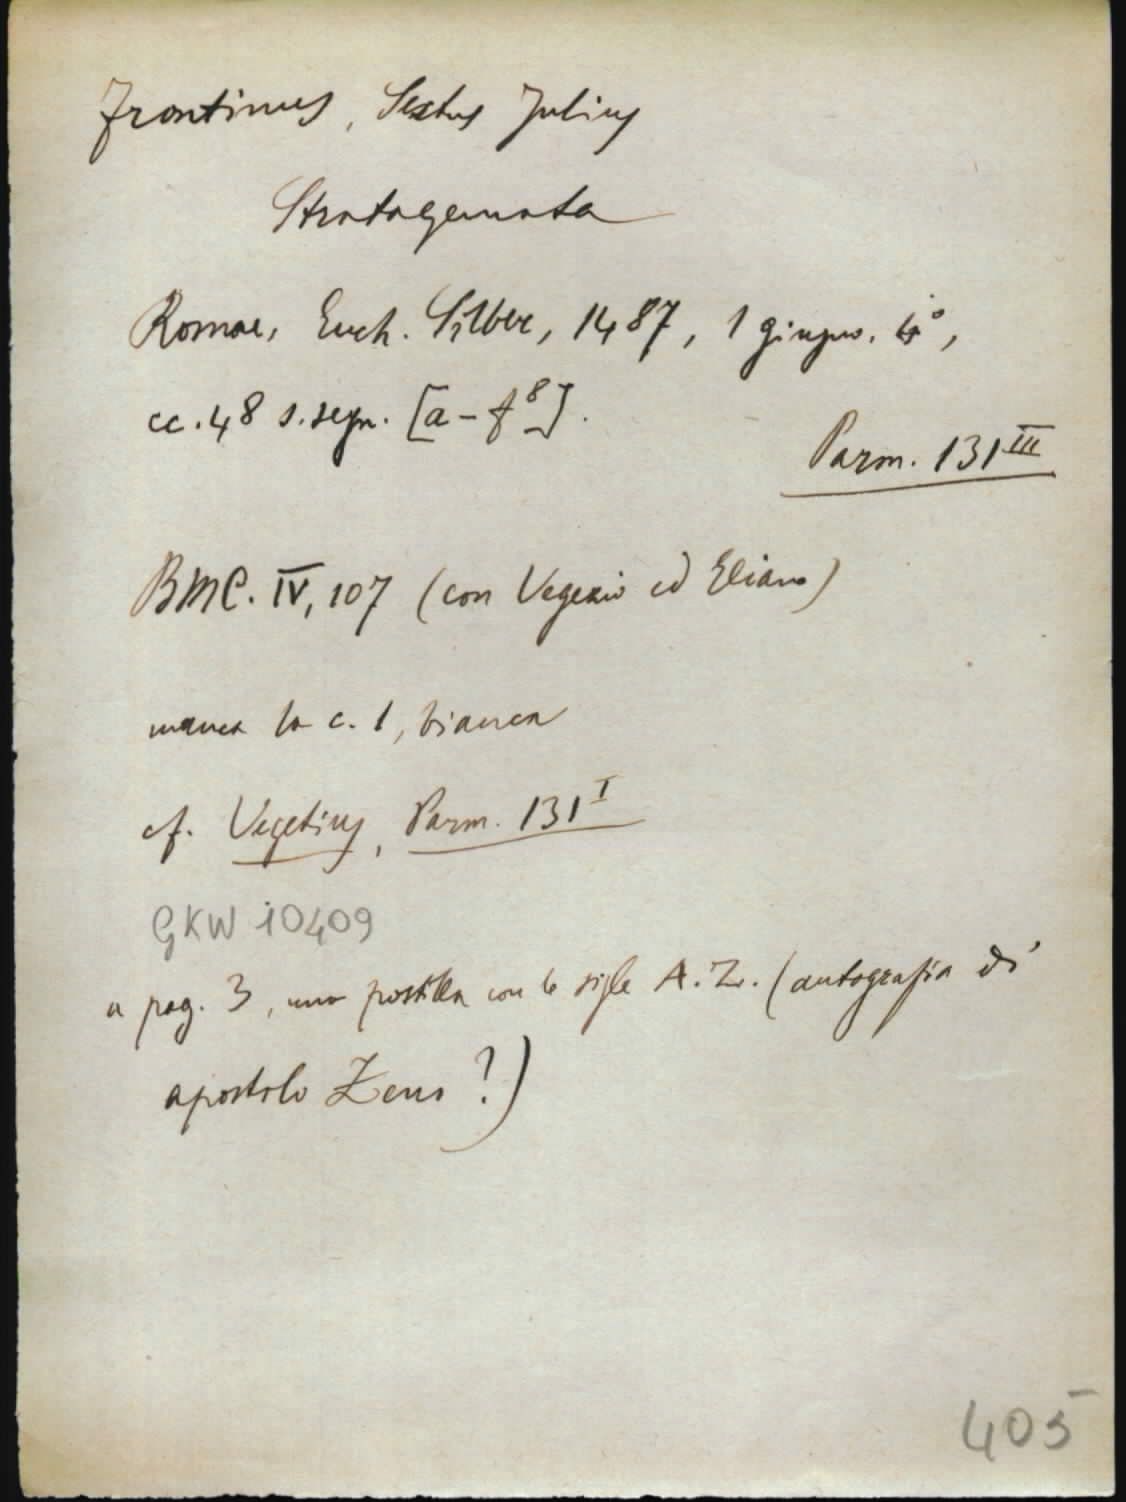 Frontinus, Sextus Julius
Stratagemata
Romae, Euch. Silber, 1487, 1 giugno. 4°,
cc. 48 s. segn. [a-f⁸].
Parm. 131 III
BMC. IV, 107 (con Vegezio ed Eliano)
manca la c. 1, bianca
cf. Vegetius, Parm. 131 I
GKW 10409
a pag. 3, una postilla con le sigle A. Z. (autografia di
apostolo Zeno ?)
405